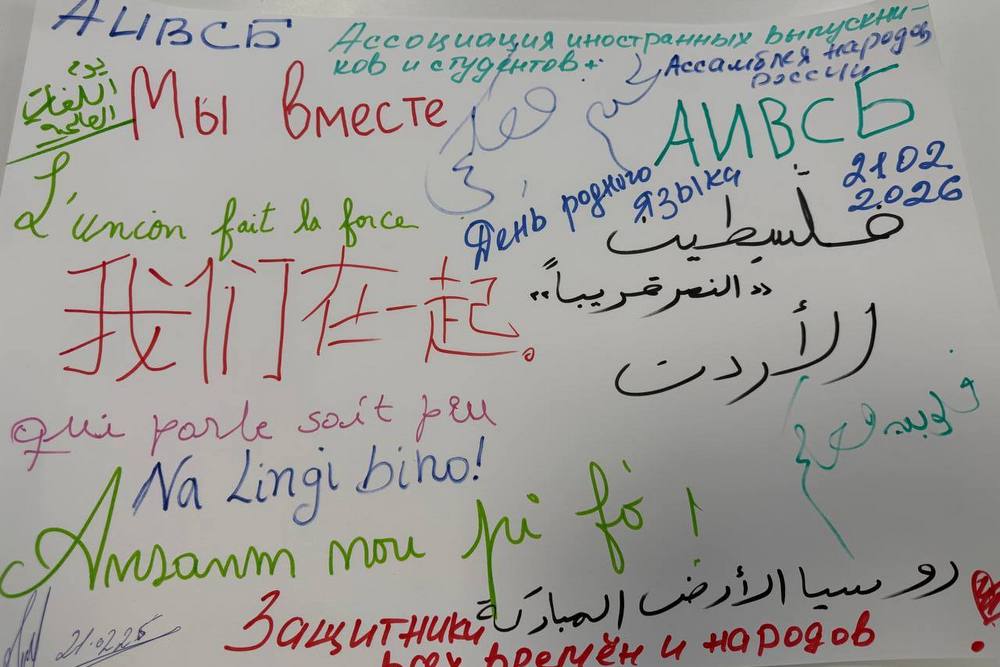 АИВСБ
Ассоциация иностранных выпускни-
ков и студентов +
Ассамблея народов
россии
АИВСБ
اللغات
العالمية
Мы вместе
21 02
2026
День родного
языка
L'uncon fait la force
فلسطين
«النصر قريباً»
我们在一起。
الأردن
qui parle soit peu
Na Lingi bino!
Ansanm nou pi fò !
روسيا الأرض المباركة
Защитники
всех времён и народов
21.02.26